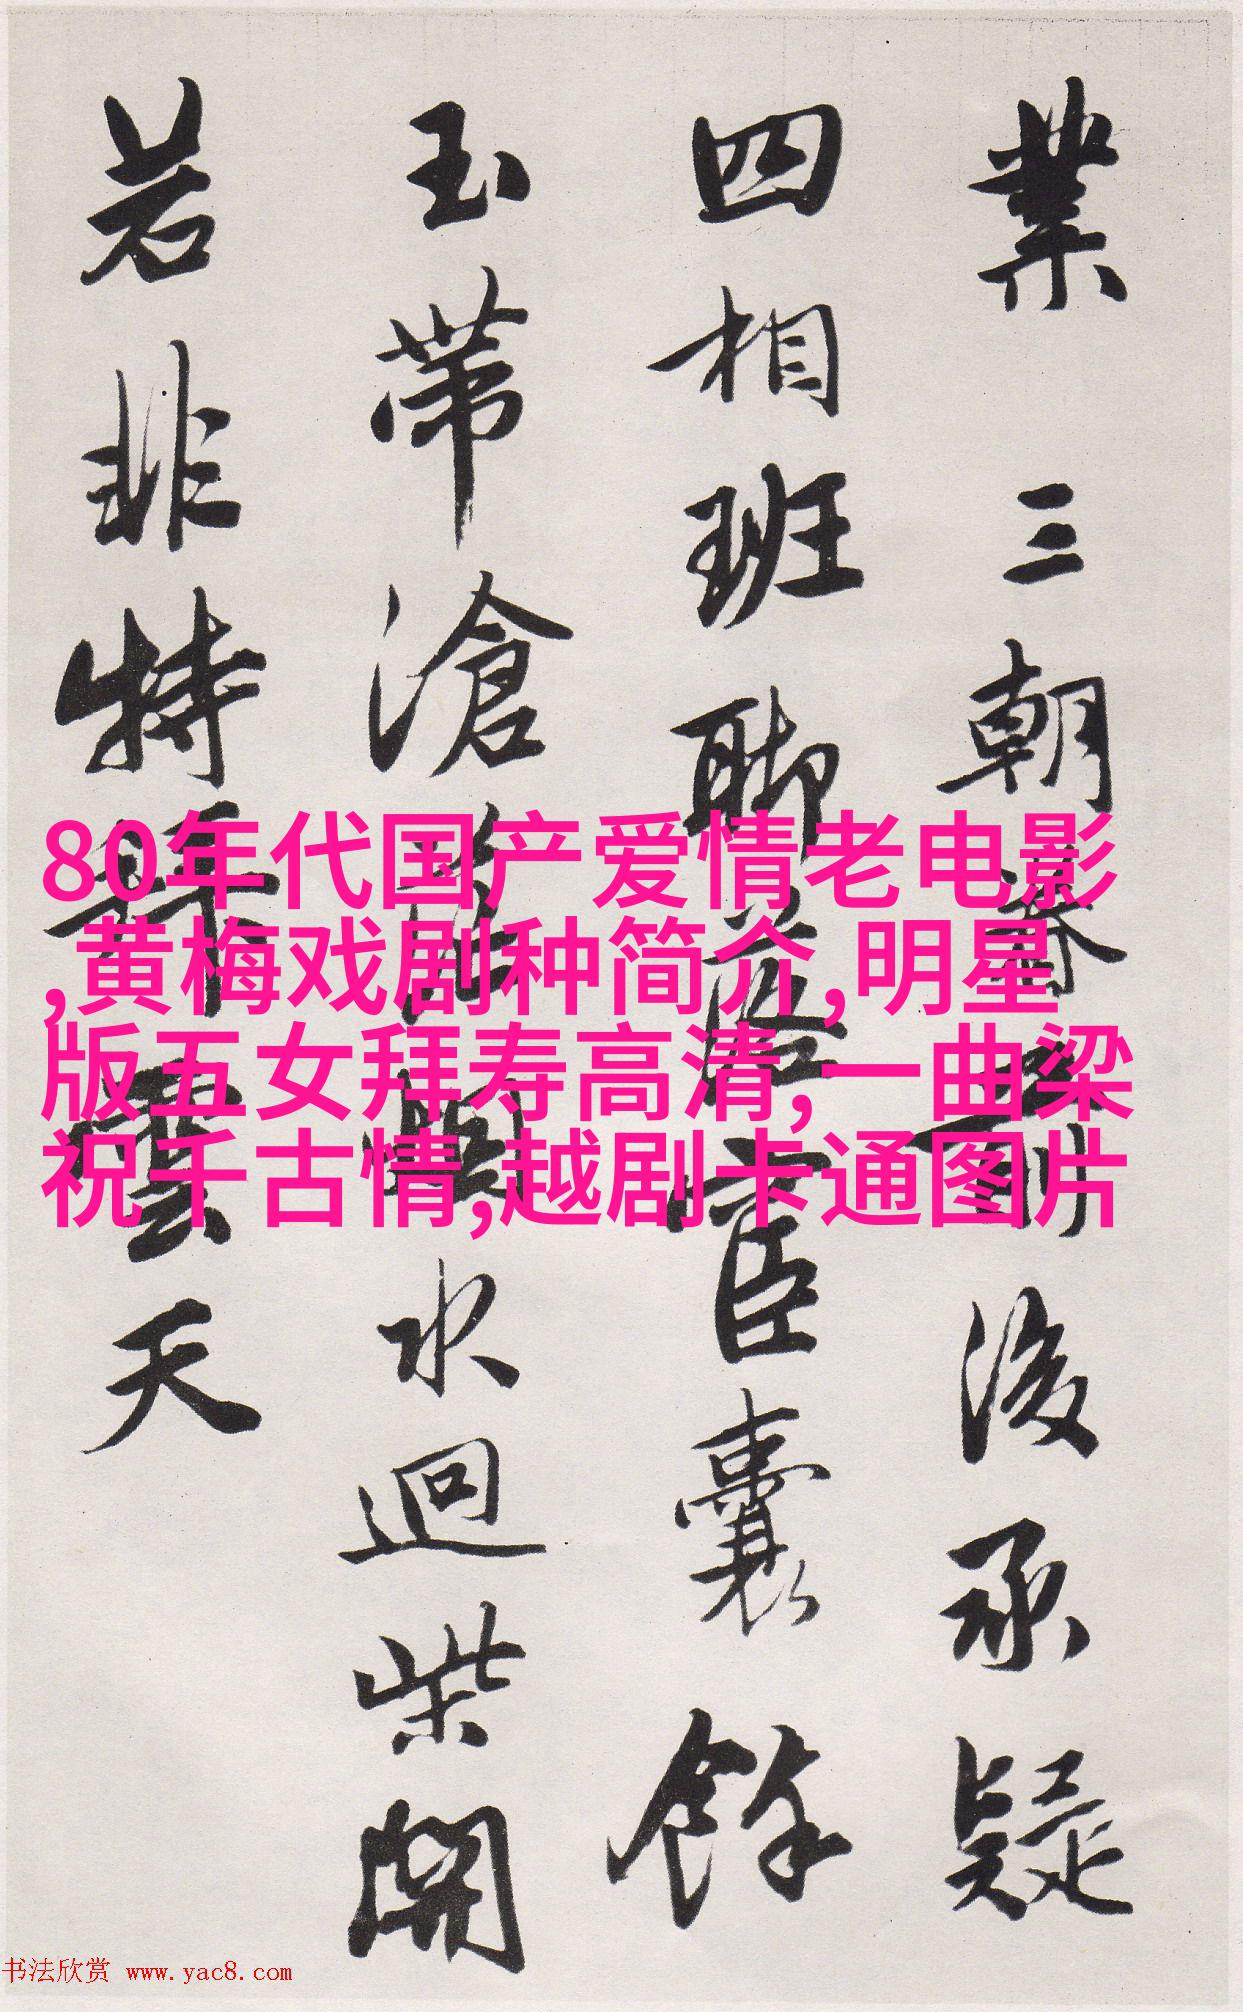 業三朝後承疑
四相班聊臣囊餘
玉帶滄水迴柴開
若非特雲天
80年代国产爱情老电影
,黄梅戏剧种简介,明星
版五女拜寿高清,一曲梁
祝千古情,越剧卡通图片
书法欣赏 www.yac8.com